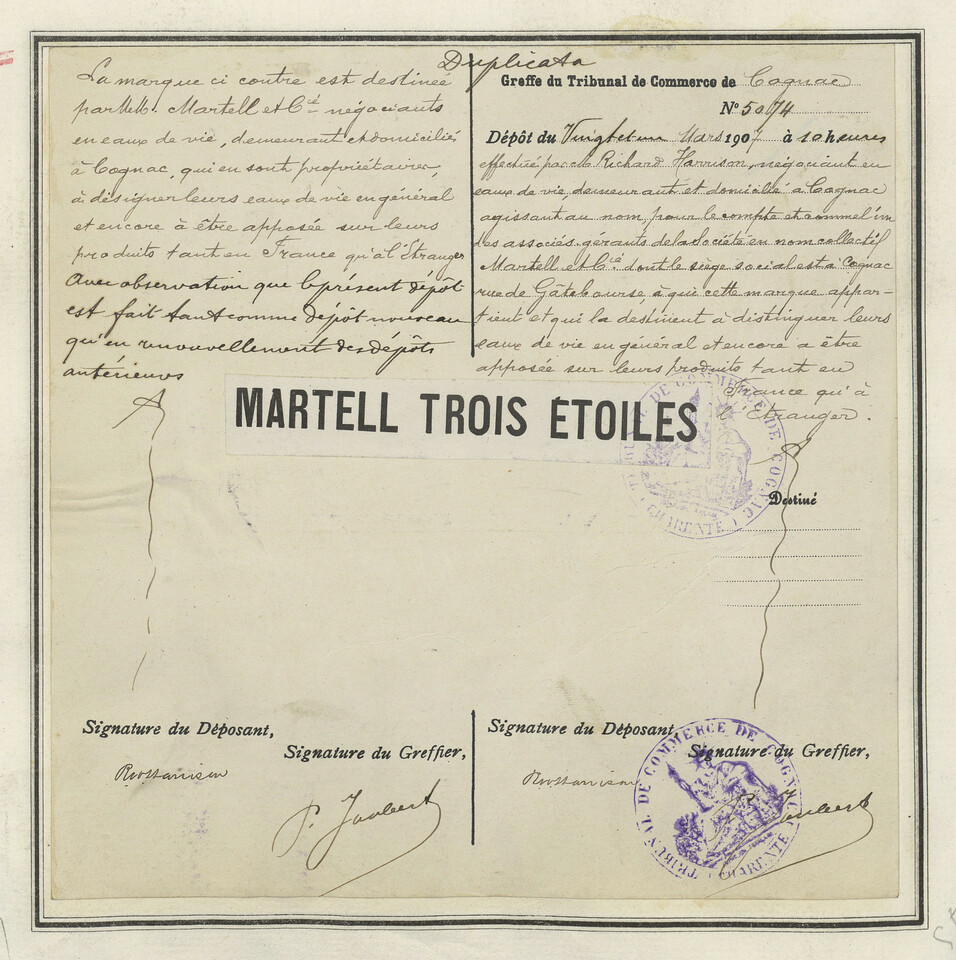 Duplicata
La marque ci contre est destinée
par MM. Martell et Cie négociants
en eaux de vie, demeurant et domiciliés
à Cognac, qui en sont propriétaires,
à désigner leurs eaux de vie en général
et encore à être apposée sur leurs
produits tant en France qu'à l'Etranger
Avec observation que le présent dépôt
est fait tant comme dépôt nouveau
qu'en renouvellement des dépôts
antérieurs
Greffe du Tribunal de Commerce de Cognac
N° 5074
Dépôt du Vingt et un Mars 1907 à 10 heures
effectué par Richard Harrison, négociant en
eaux de vie, demeurant et domicilié à Cognac
agissant au nom, pour le compte et comme l'un
des associés gérants de la Société en nom collectif
Martell et Cie dont le siège social est à Cognac
rue de Gâtebourse à qui cette marque appar-
tient et qui la destinent à distinguer leurs
eaux de vie en général et encore a être
apposée sur leurs produits tant en
France qu'à
l'Etranger.
MARTELL TROIS ÉTOILES
TRIBUNAL DE COMMERCE DE COGNAC
(CHARENTE)
Destiné
Signature du Déposant,
Signature du Greffier,
P. Joubert
Signature du Déposant,
Signature du Greffier,
P. Joubert
TRIBUNAL DE COMMERCE DE COGNAC
(CHARENTE)